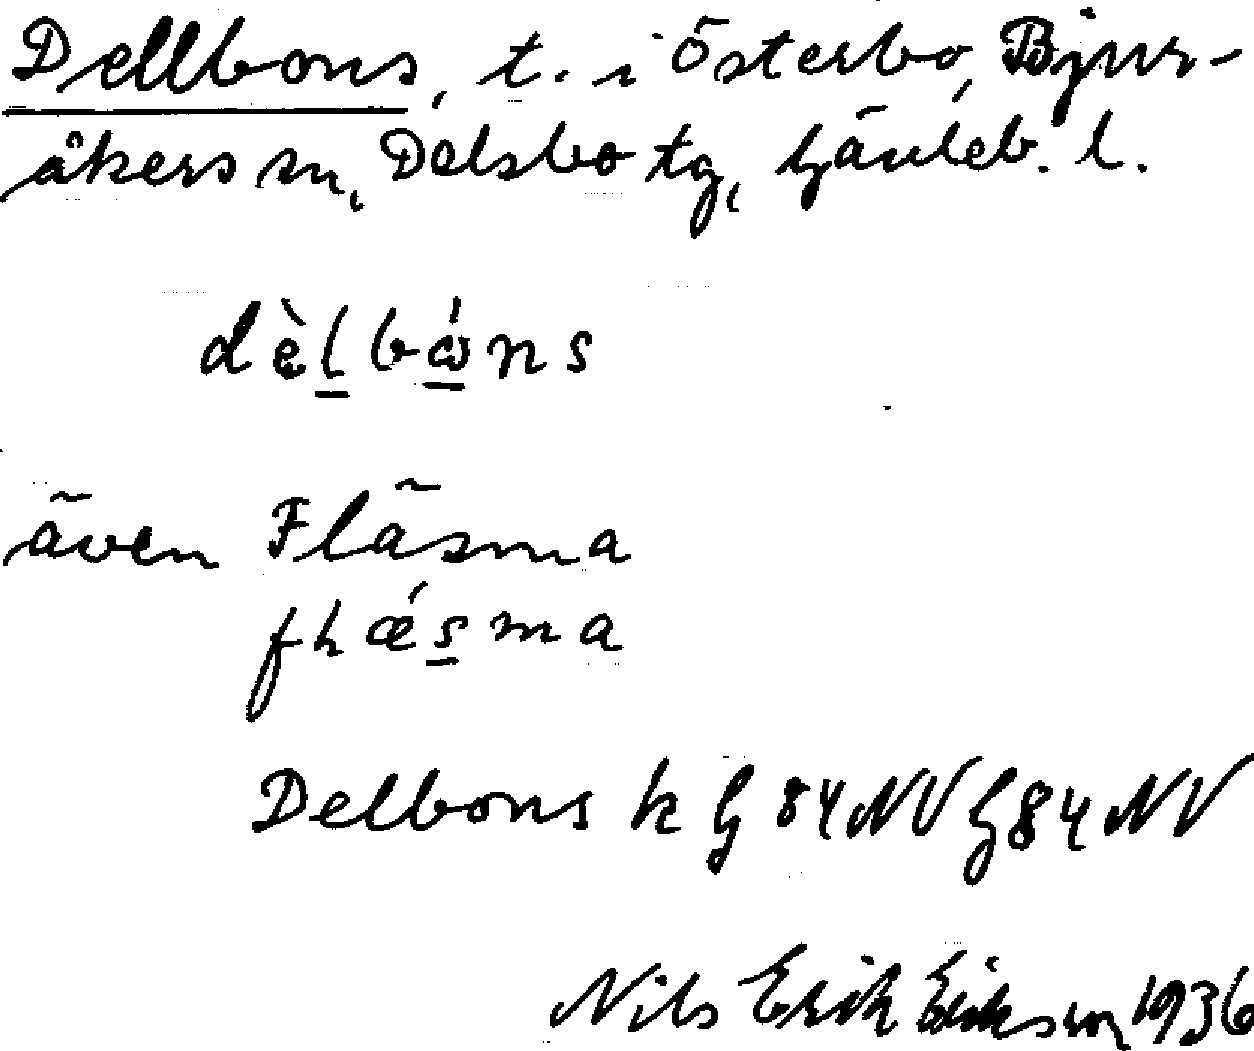 Dellbons, t. i Österbo, Bjur-
åkers sn, Delsbo tg, Gävleb. l.
dèlbω̇ns
även Fläsma
flǽsma
Delbons k G 84 NV G 84 NV
Nils Erik Eriksson 1936